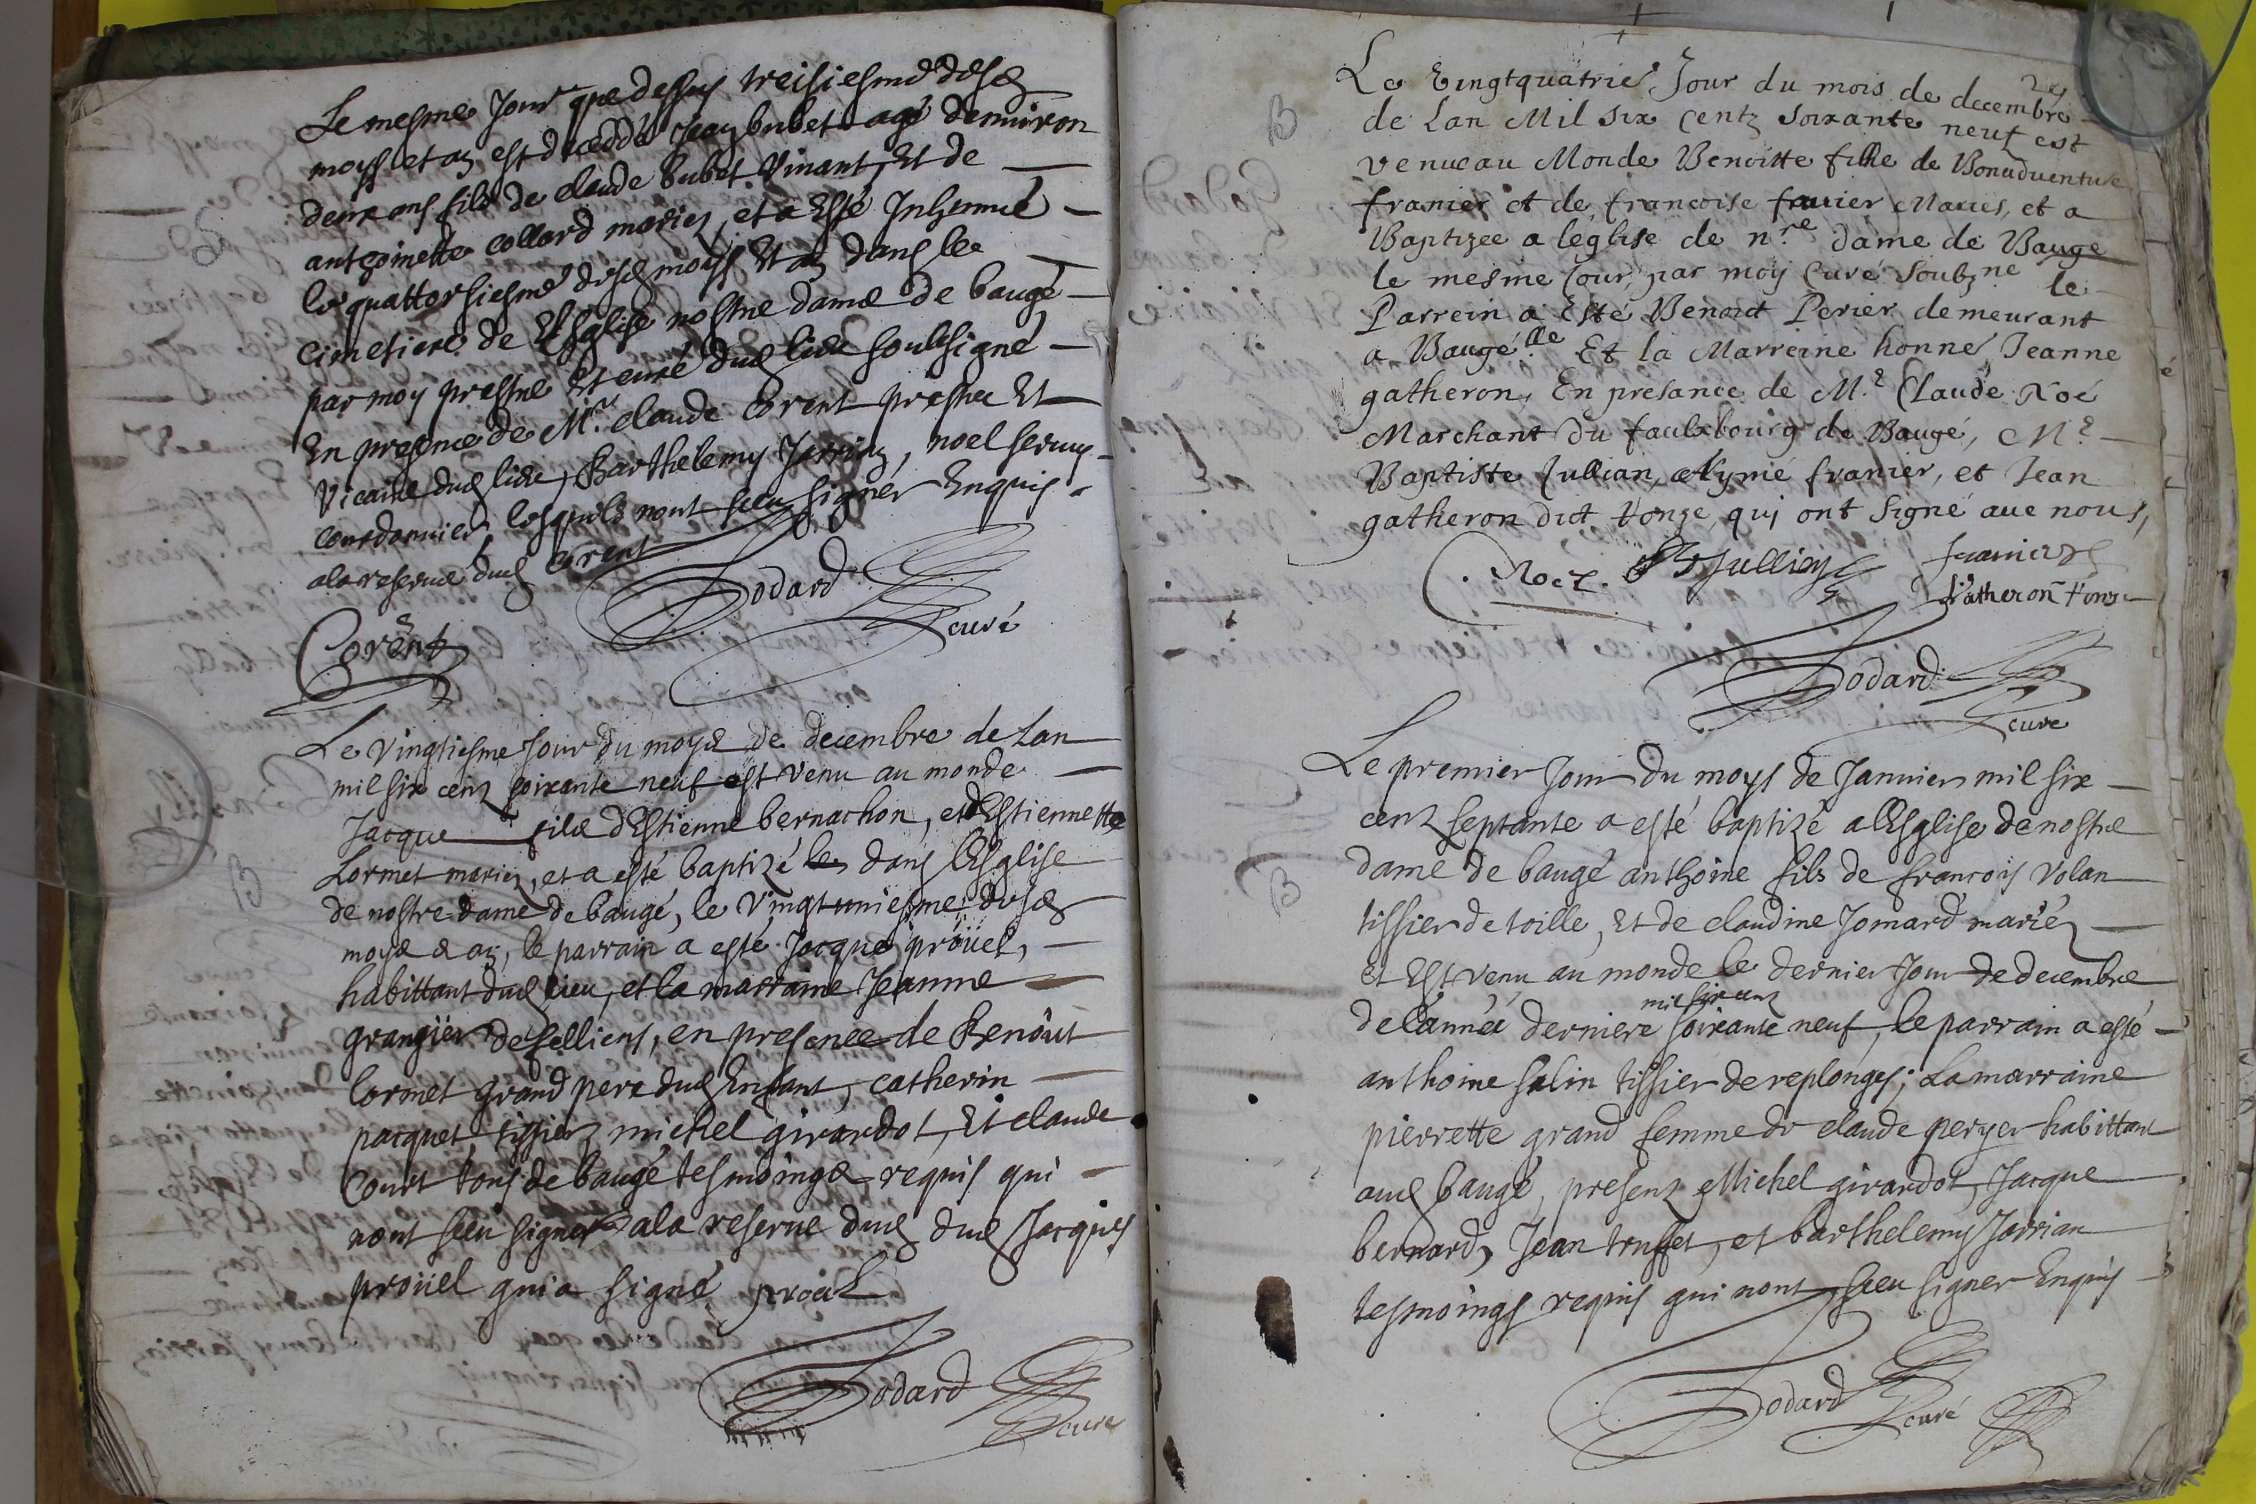 Le mesme Jour que dessus treisiesme desd
moys et an est decedde Jean bubet agé denuiron
deux ans fils de claude bubet viuant, Et de
anthoinette collard mariez, et a Esté Inhumé
le quattorsiesme desd moys Et an dans le
cimetiere de l'Esglise nostre dame de baugé
par moy prestre Et curé dud lieu soubsigné
En presence de Mre claude Corent prestre Et
vicaire dud lieu, Barthelemy Jarrian, noel
courdonnier lesquels nont sceu signer Enquis
a la reserue dud Corent
Godard
curé
Corent
Le vingtiesme Jour du moys de decembre de Lan
mil six cenz soixante neuf est venu au monde
Jacque filz d'Estienne bernachon, et d'Estiennette
Lormet mariez, et a esté baptizé le dans l'Esglise
de nostre dame de baugé, le vingt uniesme desd
moys & an, le parrain a esté Jacque proüel,
habittant dud lieu, et la marraine Jeanne
grangier de felliens, en presence de Benoit
lormet grand pere dud Enfant, catherin
pacquet tissier, michel girardot, Et claude
Court tous de baugé tesmoings requis qui
nont sceu signer a la reserue dud dud Jacques
proüel qui a signé proüel
Godard
curé
B
24
Le Vingtquatrie Jour du mois de decembre
de Lan Mil six Centz Soixante neuf est
venue au Monde Benoitte fille de Bonaduenture
franier et de francoise frauier Mariés, et a
Baptizee a leglise de n.re dame de Baugé
le mesme Jour, par moy Curé Soubz.ne le
Parrein a Esté Benoict Perier demeurant
a Baugé Et la Marreine honné Jeanne
gatheron, En presance de M.e Claude Noé
Marchant du faulxbourg de Baugé, M.e
Baptiste Jullian, Aymé franier, et Jean
gatheron dict tonge, qui ont Signé auec nous,
Noez. B Jullien franier
gatheron
Godard
cure
B
Le premier Jour du moys de Januier mil six
cenz septante a esté baptizé a l'Esglise de nostre
dame de baugé anthoine fils de francois volan
tissier de toille, Et de claudine Jomard mariéz
Et Est venu au monde le dernier Jour de decembre
mil six cenz
de l'année derniere soixante neuf, le parrain a esté
anthoine salin tissier de replonges; La marraine
pierrette grand femme de claude peryer habittant
aud baugé, presenz Michel girardot, Jacque
bernard, Jean truffet, et barthelemy Jarrian
tesmoings requis qui nont sceu signer Enquis
Godard
curé